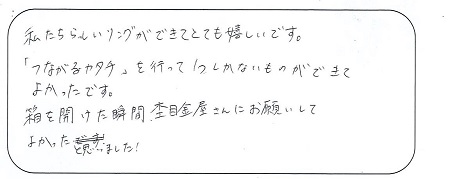 私たちらしいリングができてとても嬉しいです。
「つながるカタチ」を行って1つしかないものができて
よかったです。
箱を開けた瞬間、杢目金屋さんにお願いして
よかったと思いました!